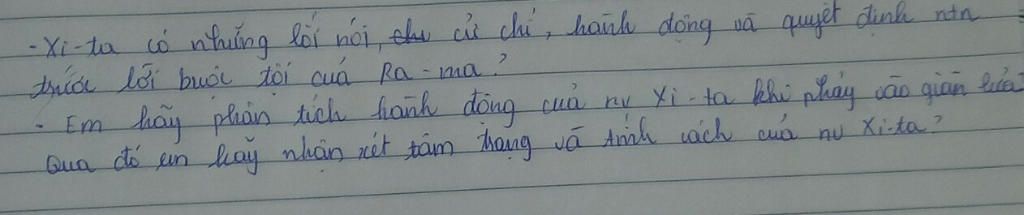 - Xi-ta có những lời nói, cử chỉ, hành động và quyết định ntn
trước lời buộc tội của Ra-ma?
- Em hãy phân tích hành động của nv Xi-ta khi nhảy vào giàn lửa?
Qua đó em hãy nhận xét tâm trạng và tính cách của nv Xi-ta?